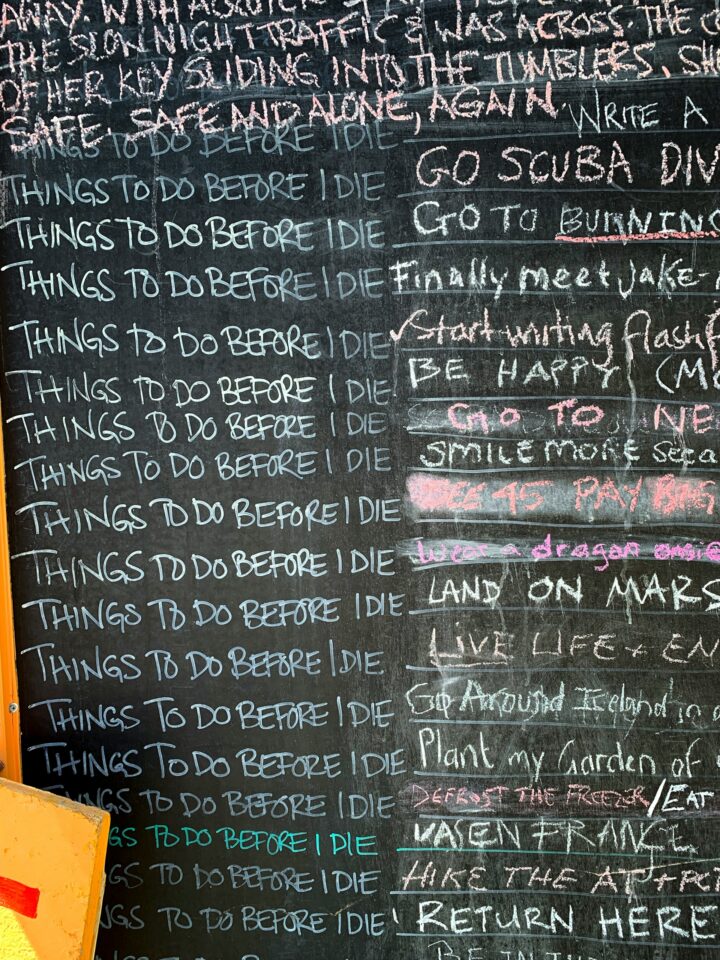 AWAY. WITH
THE SLOW NIGHT TRAFFIC & WAS ACROSS THE
OF HER KEY SLIDING INTO THE TUMBLERS. SH
SAFE. SAFE AND ALONE, AGAIN.
THINGS TO DO BEFORE I DIE WRITE A
THINGS TO DO BEFORE I DIE GO SCUBA DIV
THINGS TO DO BEFORE I DIE GO TO BURNING
THINGS TO DO BEFORE I DIE Finally meet Jake-
THINGS TO DO BEFORE I DIE Start writing flash f
THINGS TO DO BEFORE I DIE BE HAPPY (MO
THINGS TO DO BEFORE I DIE GO TO NE
THINGS TO DO BEFORE I DIE SMILE MORE
THINGS TO DO BEFORE I DIE SEE 45 PAY BIG
THINGS TO DO BEFORE I DIE Wear a dragon onsie
THINGS TO DO BEFORE I DIE LAND ON MARS
THINGS TO DO BEFORE I DIE LIVE LIFE + EN
THINGS TO DO BEFORE I DIE Go Around Iceland in a
THINGS TO DO BEFORE I DIE Plant my Garden of
THINGS TO DO BEFORE I DIE DEFROST THE FREEZER/EAT
GS TO DO BEFORE I DIE EN FRANCE
GS TO DO BEFORE I DIE HIKE THE AT +
NGS TO DO BEFORE I DIE RETURN HERE
BE IN